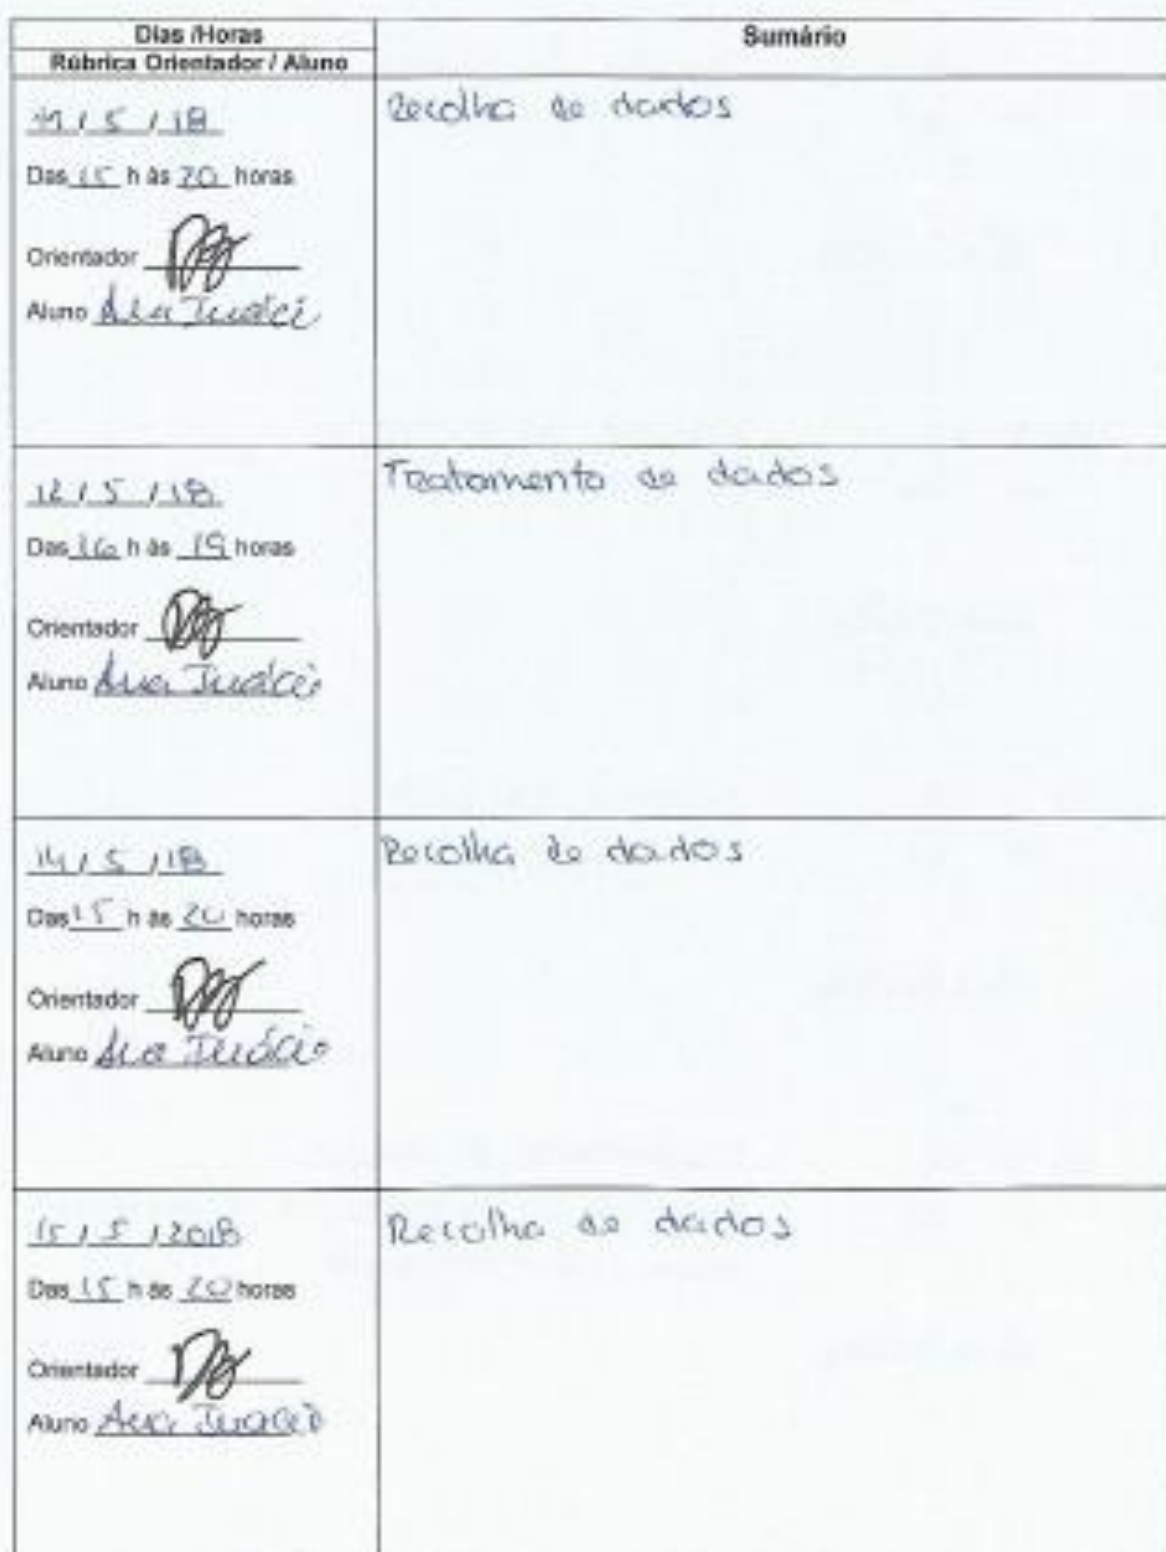 Dias /Horas
Rúbrica Orientador / Aluno
Sumário
11 / 5 / 18
Das 15 h às 20 horas
Orientador
Aluno Ana Inácio
Recolha de dados
12 / 5 / 18
Das 16 h às 19 horas
Orientador
Aluno Ana Inácio
Tratamento de dados
14 / 5 / 18
Das 15 h às 20 horas
Orientador
Aluno Ana Inácio
Recolha de dados
15 / 5 / 2018
Das 15 h às 20 horas
Orientador
Aluno Ana Inácio
Recolha de dados